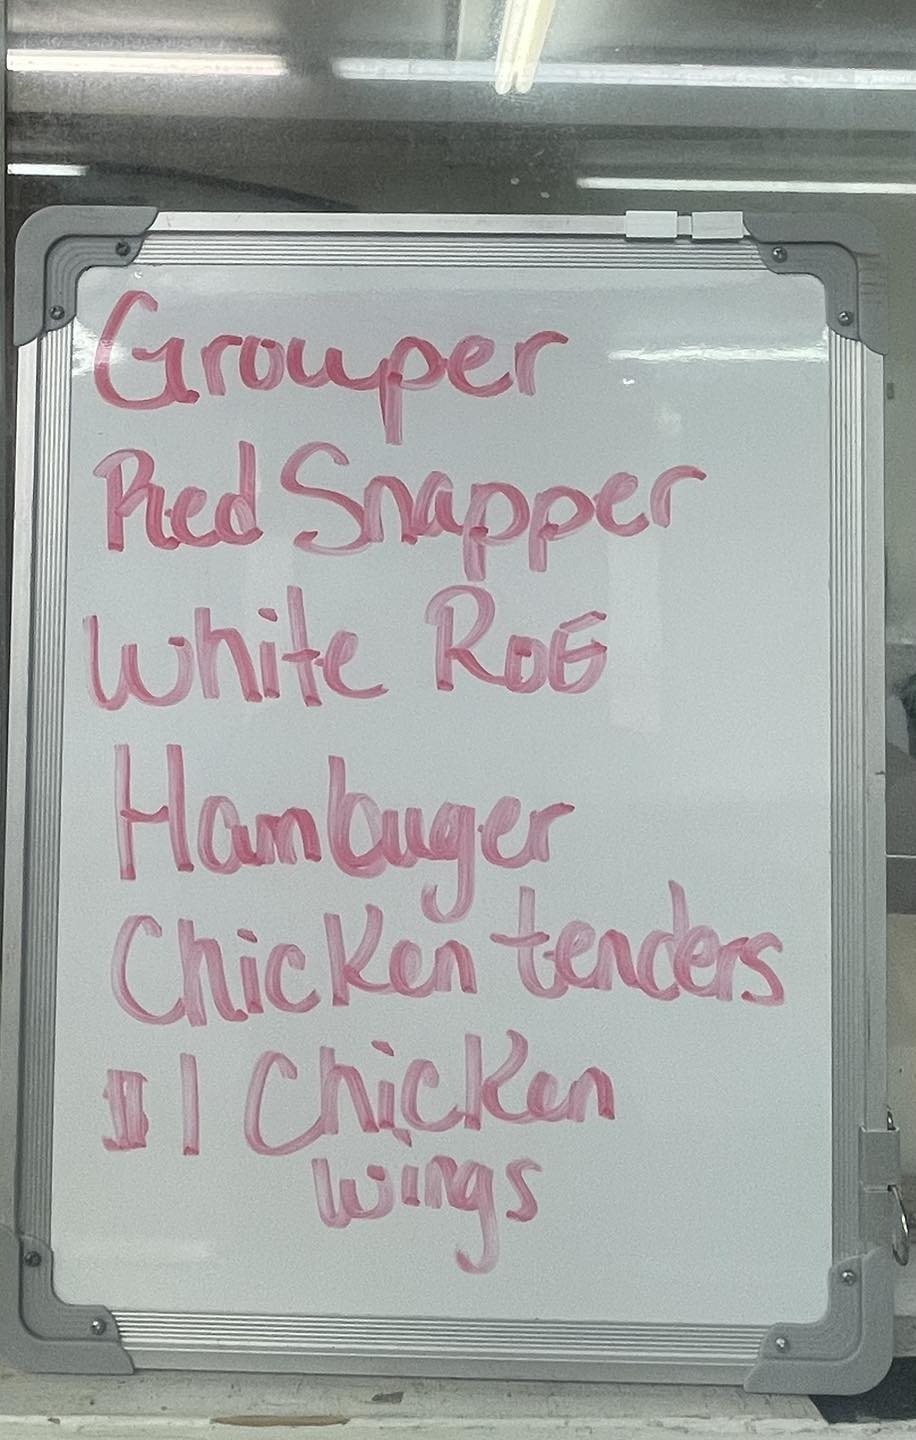 Grouper
Red Snapper
White RoE
Hambuger
Chicken tenders
$1 Chicken
wings